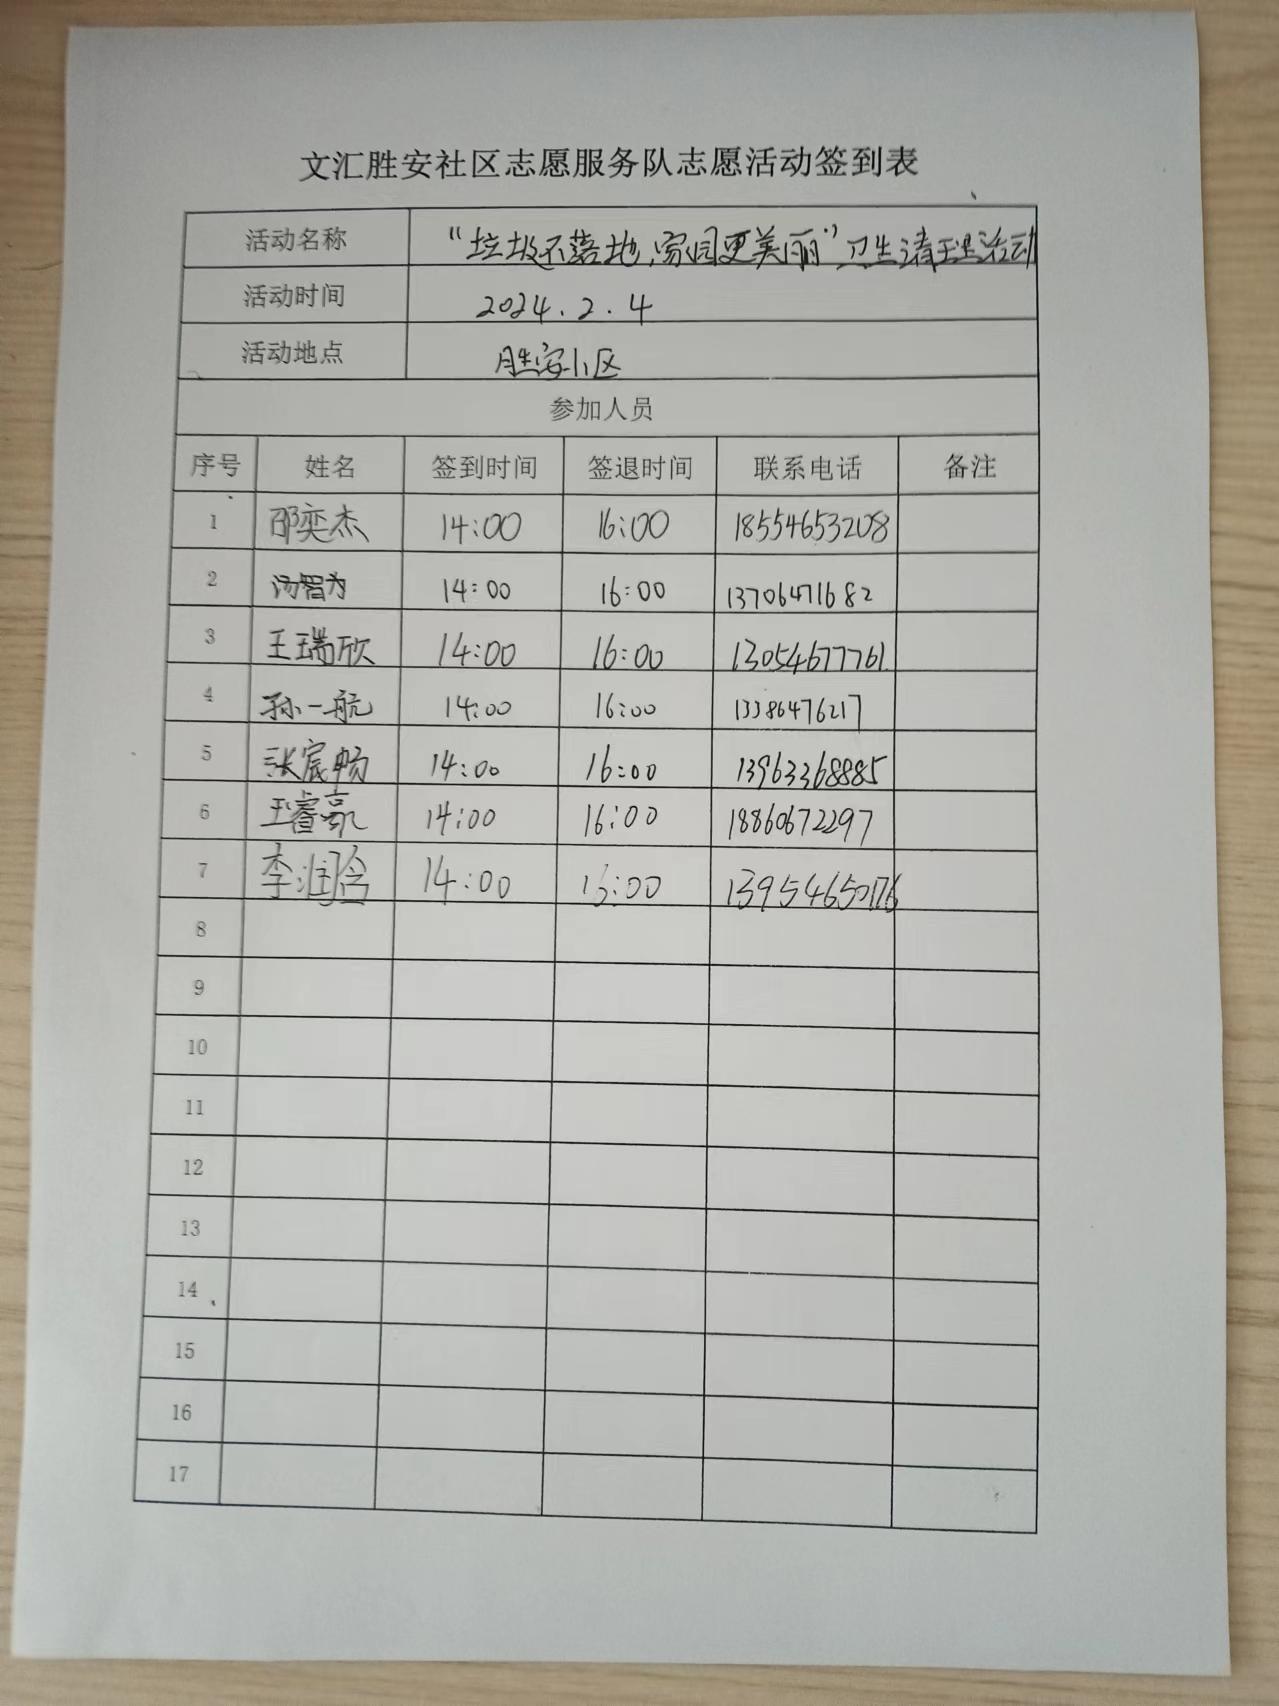 文汇胜安社区志愿服务队志愿活动签到表
活动名称 “垃圾不落地,家园更美丽”卫生清理活动
活动时间 2024.2.4
活动地点 胜安小区
参加人员
序号 姓名 签到时间 签退时间 联系电话 备注
1 邵奕杰 14:00 16:00 18554653208
2 汤智为 14:00 16:00 13706471682
3 王瑞欣 14:00 16:00 13054677761
4 孙一航 14:00 16:00 13386476217
5 张宸畅 14:00 16:00 13963368885
6 王睿豪 14:00 16:00 18860672297
7 李润晗 14:00 16:00 13954650176
8
9
10
11
12
13
14
15
16
17